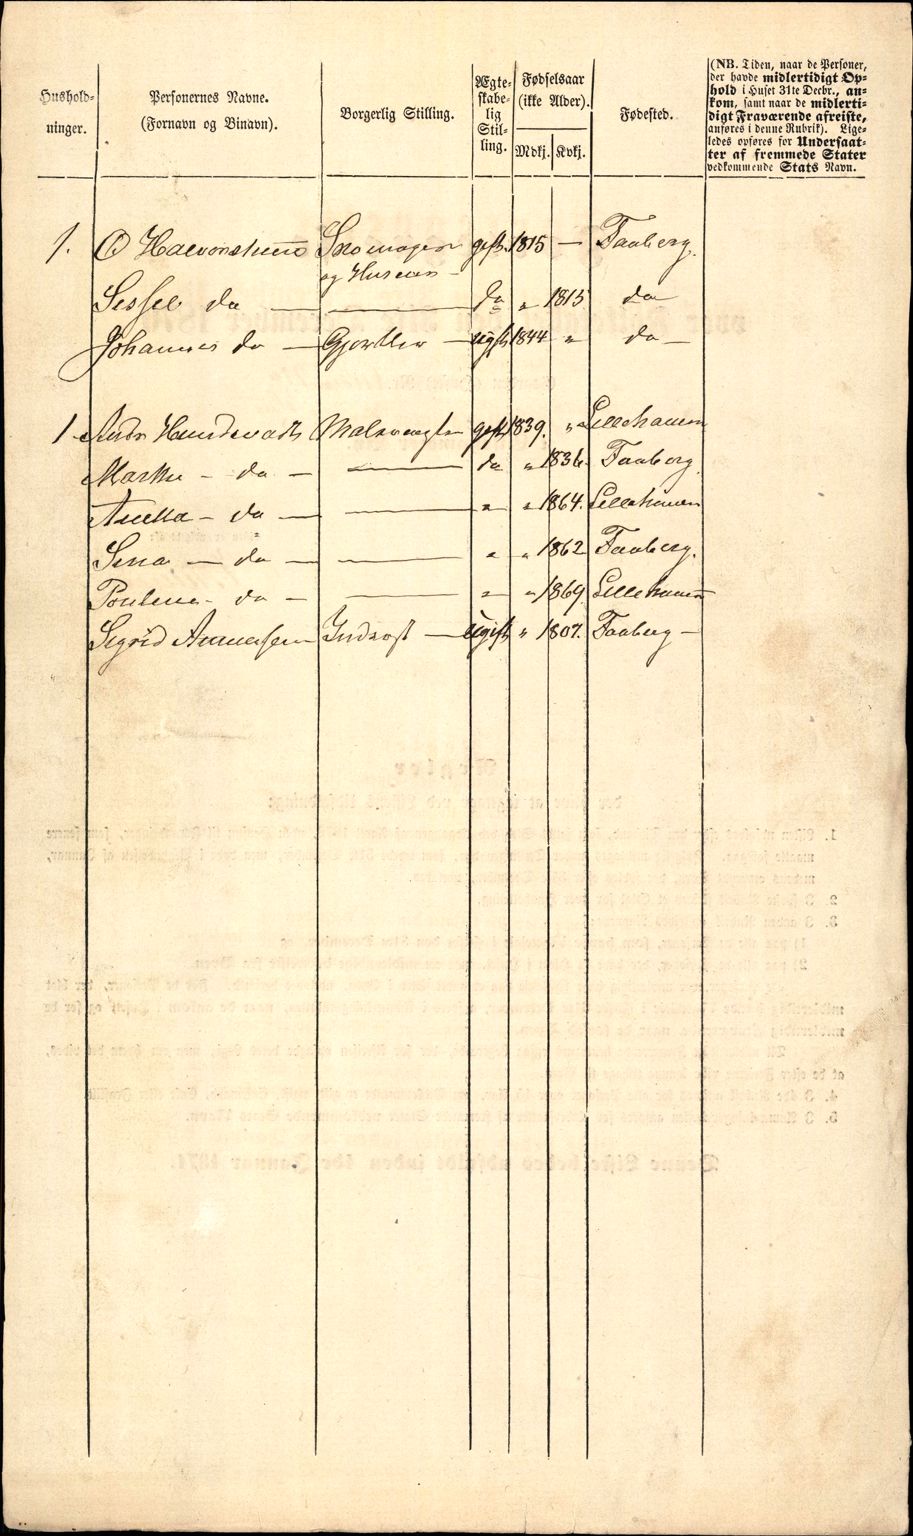 Hushold-
ninger.
Personernes Navne.
(Fornavn og Binavn).
Borgerlig Stilling.
Ægte-
skabe-
lig
Stil-
ling.
Fødselsaar
(ikke Alder).
Mdkj. Kvkj.
Fødested.
(NB. Tiden, naar de Personer,
der havde midlertidigt Op-
hold i Huset 31te Decbr., an-
kom, samt naar de midlerti-
digt Fraværende afreiste,
anføres i denne Rubrik). Lige-
ledes opføres for Undersaat-
ter af fremmede Stater
vedkommende Stats Navn.
1. O Gift. 1815 — Faaberg.
og
Sessel do — — do " 1815 do
Johannes do — Gjørtler — ugft 1844 " do —
1 Andr gift 1839. " Lillehamm
Marthe — do — — do " 1836 Faaberg
— do — — " " 1864. Lillehamm
Sina — do — — " " 1862 Faaberg.
Pouline — do — — " " 1869 Lillehamm
Sigrid Inderst — Ugift " 1807. Faaberg —